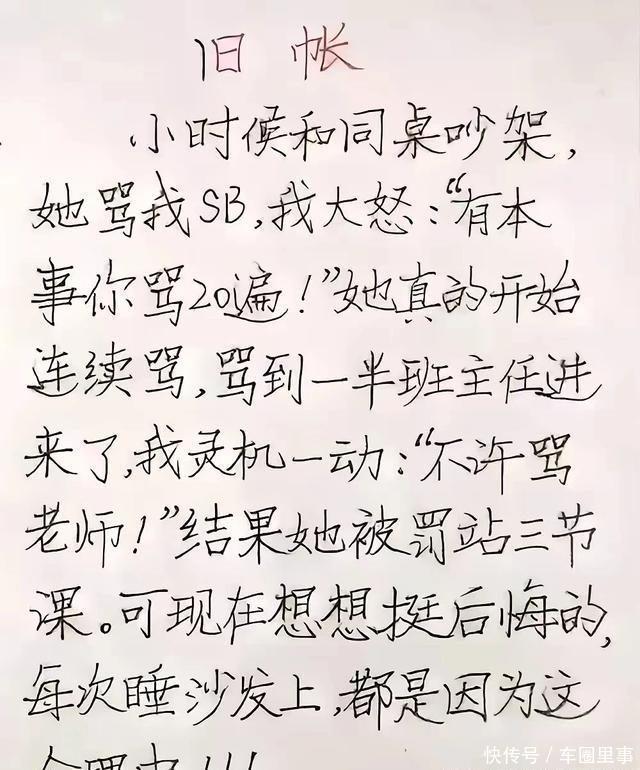 旧帐
小时候和同桌吵架，
她骂我SB，我大怒：“有本
事你骂20遍！”她真的开始
连续骂，骂到一半班主任进
来了，我灵机一动：“不许骂
老师！”结果她被罚站三节
课。可现在想想挺后悔的，
每次睡沙发上，都是因为这
快传号／车圈里事